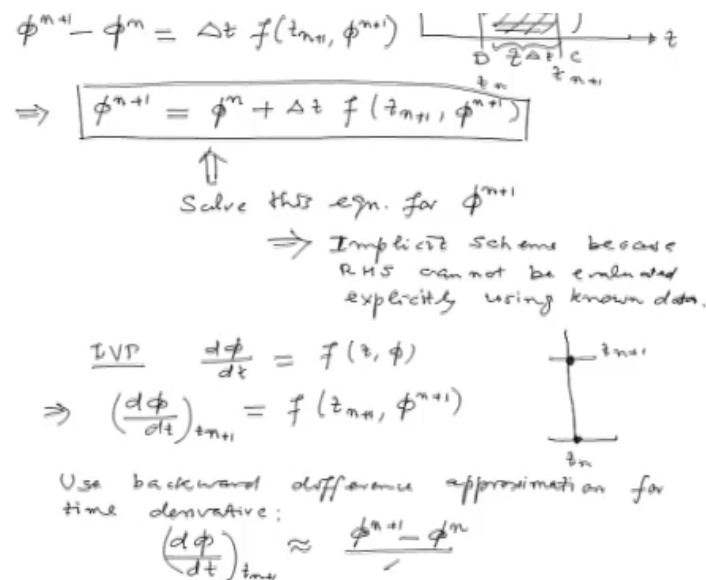 ϕⁿ⁺¹ − ϕⁿ = Δt f(tₙ₊₁, ϕⁿ⁺¹)
D Δt C t
tₙ tₙ₊₁
⇒ ϕⁿ⁺¹ = ϕⁿ + Δt f(tₙ₊₁, ϕⁿ⁺¹)
⇑
Solve this eqn. for ϕⁿ⁺¹
⇒ Implicit scheme because
RHS cannot be evaluated
explicitly using known data.
IVP dϕ/dt = f(t, ϕ)
tₙ₊₁
⇒ (dϕ/dt)tₙ₊₁ = f(tₙ₊₁, ϕⁿ⁺¹)
tₙ
Use backward difference approximation for
time derivative:
(dϕ/dt)tₙ₊₁ ≈ ϕⁿ⁺¹ − ϕⁿ